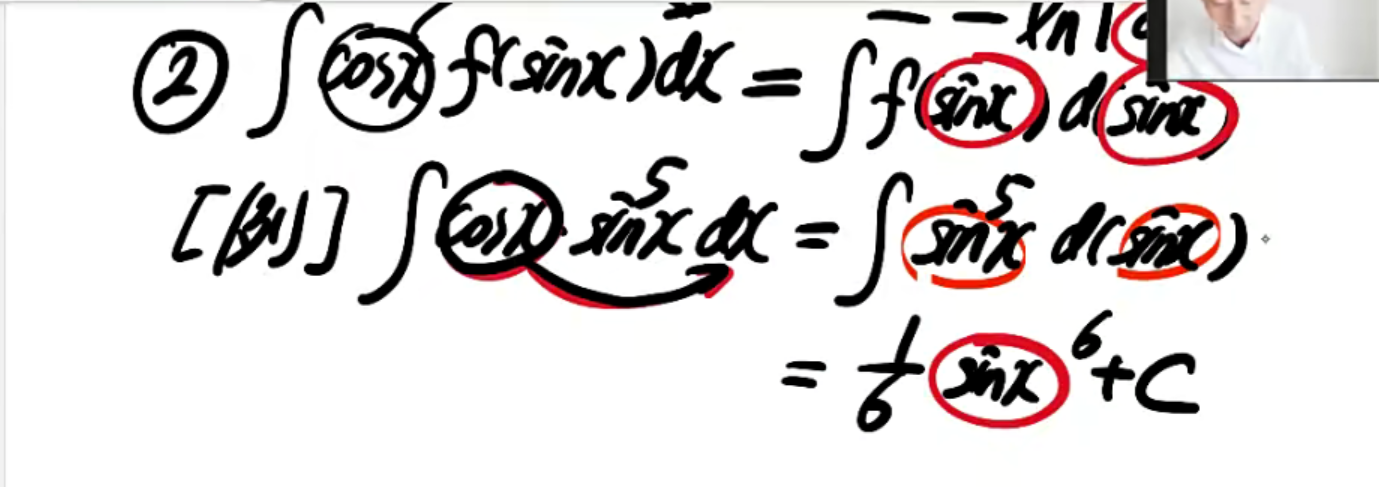 − − ln|
② ∫ cosx f(sinx)dx = ∫ f(sinx) d(sinx)
[例] ∫ cosx·sin⁵x dx = ∫ sin⁵x d(sinx)
= 1/6 sinx⁶ + C